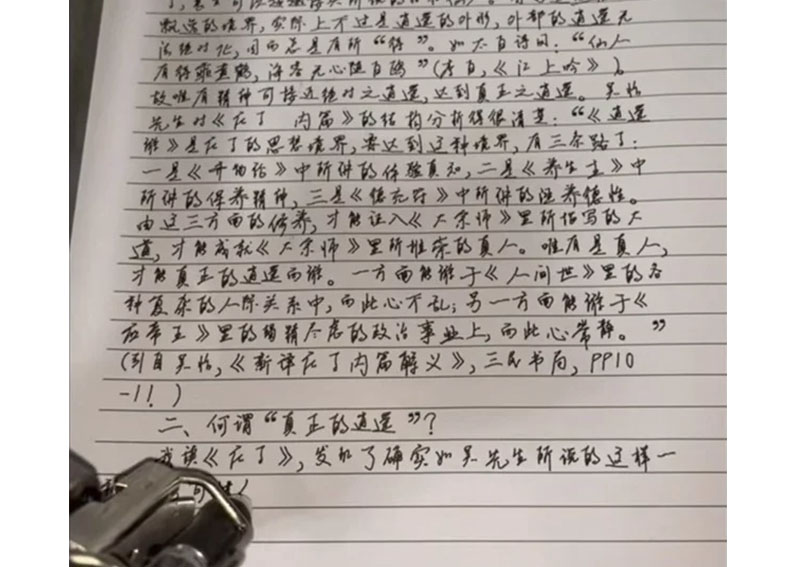 飘逸的境界,实际上不过是逍遥的外形,外部的逍遥无
法绝对化,因而总是有所“待”。如太白诗曰:“仙人
有待乘黄鹤,海客无心随白鸥”(李白,《江上吟》)。
故唯有精神可接近绝对之逍遥,达到真正之逍遥。吴怡
先生对《庄子 内篇》的结构分析得很清楚:“《逍遥
游》是庄子的思想境界,要达到这种境界,有三条路子:
一是《齐物论》中所讲的体验真知,二是《养生主》中
所讲的保养精神,三是《德充符》中所讲的涵养德性。
由这三方面的修养,才能证入《大宗师》里所描写的大
道,才能成就《大宗师》里所推崇的真人。唯有是真人,
才能真正的逍遥而游。一方面能游于《人间世》里的各
种复杂的人际关系中,而此心不乱;另一方面能游于《
应帝王》里的殚精尽虑的政治事业上,而此心常静。”
(引自吴怡,《新译庄子内篇解义》,三民书局,PP10
-11)
二、何谓“真正的逍遥”?
我读《庄子》,发现了确实如吴先生所说的这样一